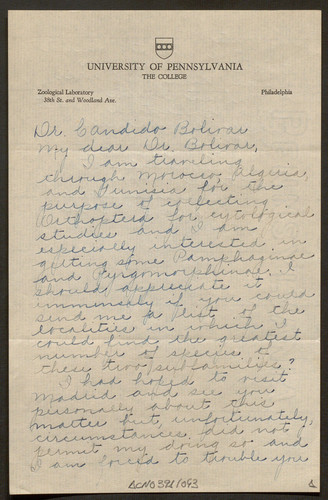 UNIVERSITY OF PENNSYLVANIA
THE COLLEGE
Zoological Laboratory
38th St. and Woodland Ave.
Philadelphia
Dr. Candido Bolivar
My dear Dr. Bolivar,
I am traveling
through Morocco, Algeria,
and Tunisia for the
purpose of collecting
Orthoptera for cytological
studies and I am
especially interested in
getting some Pamphaginae
and Pyrgomorphinae. I
should appreciate it
immensely if you could
send me a list of the
localities in which I
could find the greatest
number of species of
these two subfamilies?
I had hoped to visit
Madrid and see you
personally about this
matter but, unfortunately,
circumstances did not
permit my doing so and
I am forced to trouble you
ACN0391/093